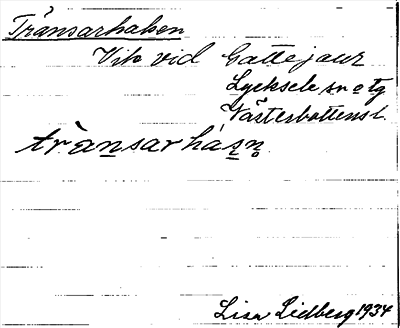 Tränsarhalsen
Vik vid Gattejaur
Lycksele sn o tg
Västerbottens l.
trànsarhásn̥
Lisa Lidberg 1934